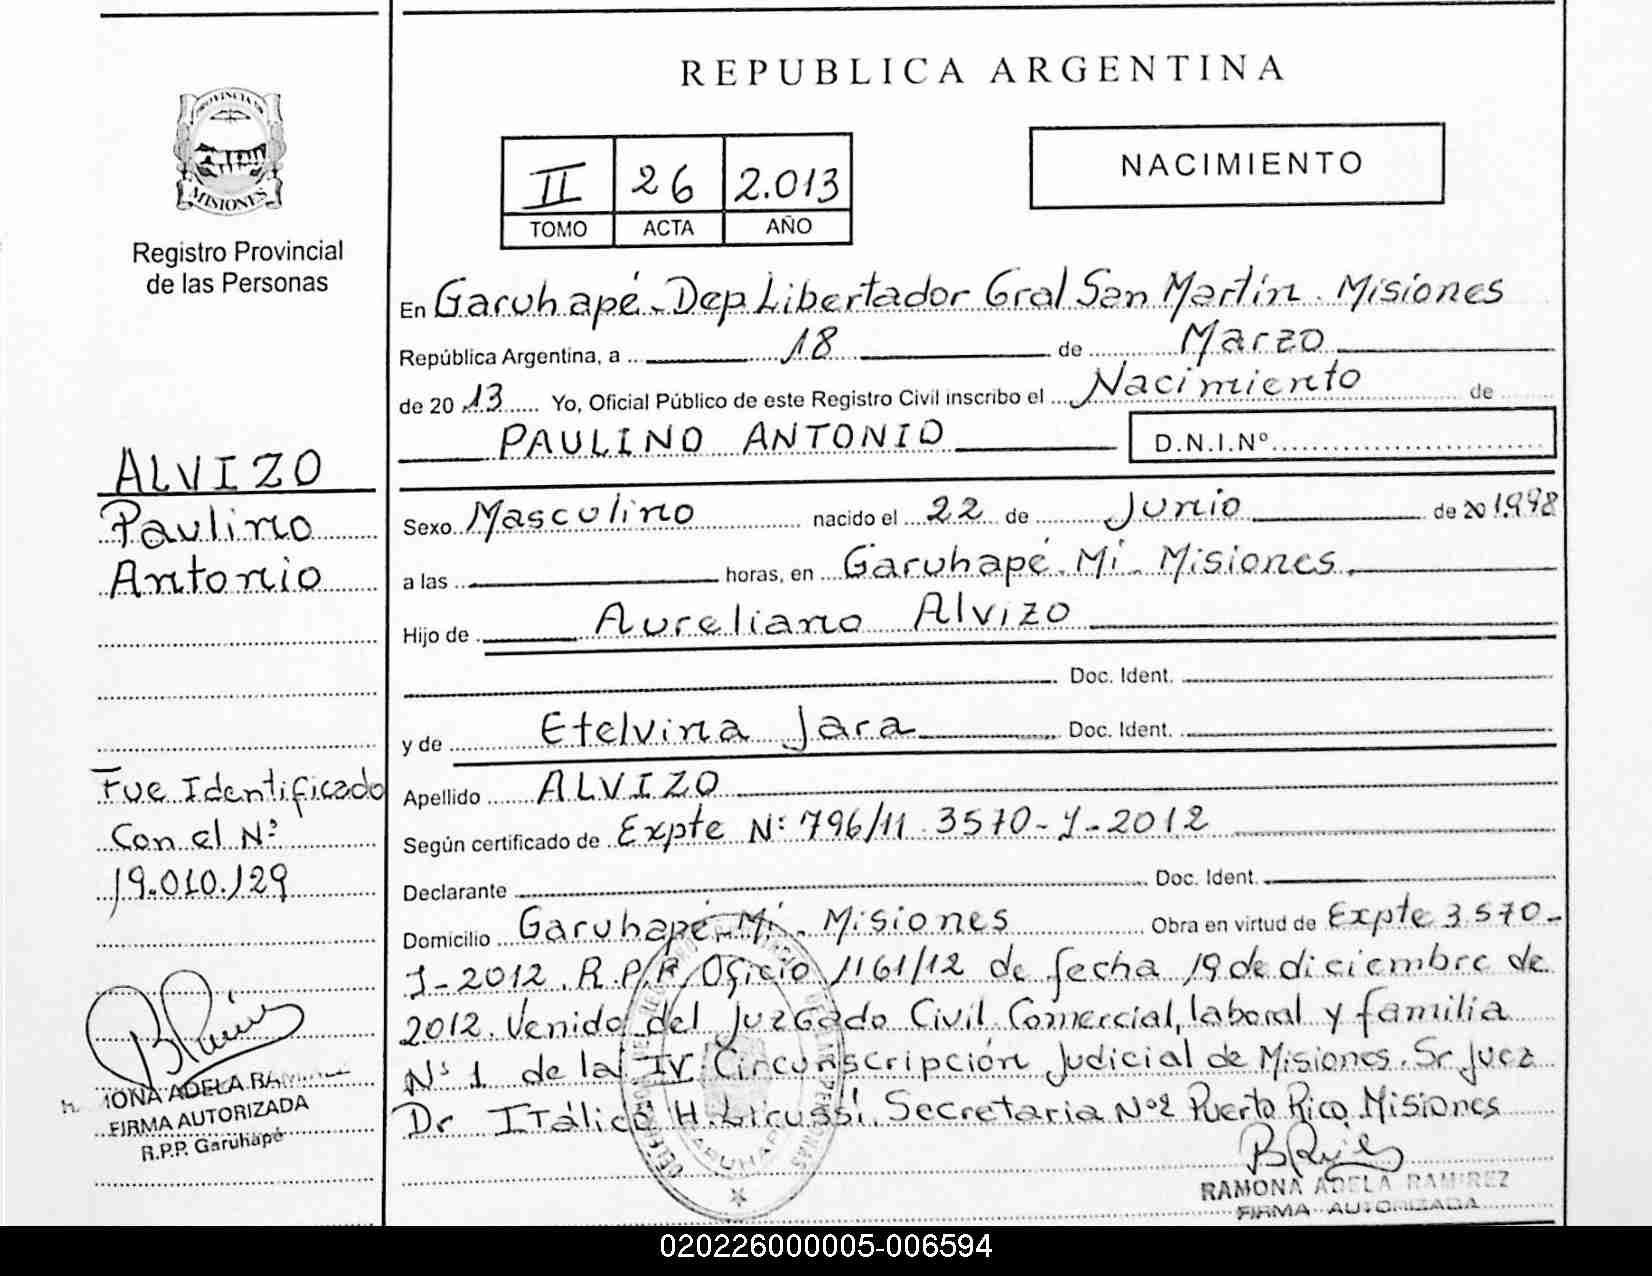 REPUBLICA ARGENTINA
PROVINCIA DE
MISIONES
Registro Provincial
de las Personas
II 26 2.013
TOMO ACTA AÑO
NACIMIENTO
En Garuhapé. Dep Libertador Gral San Martín. Misiones
República Argentina, a 18 de Marzo
de 20 13 Yo, Oficial Público de este Registro Civil inscribo el Nacimiento de
PAULINO ANTONIO D.N.I.Nº
Sexo Masculino nacido el 22 de Junio de 20 1.998
a las horas, en Garuhapé. Mi. Misiones.
Hijo de Aureliano Alvizo
Doc. Ident.
y de Etelvina Jara Doc. Ident.
Apellido ALVIZO
Según certificado de Expte Nº 796/11 3570-J-2012
Declarante Doc. Ident.
Domicilio Garuhapé. Mi. Misiones Obra en virtud de Expte 3570-
J-2012. R.P.P. Oficio 1161/12 de fecha 19 de diciembre de
2012. Venido del Juzgado Civil Comercial, laboral y familia
Nº 1 de la IV Circunscripción Judicial de Misiones. Sr Juez
Dr Itálico H. Licussi. Secretaria Nº2 Puerto Rico Misiones
RAMONA ADELA RAMIREZ
FIRMA AUTORIZADA
ALVIZO
Paulino
Antonio
Fue Identificado
Con el Nº
19.010.129
ADELA
FIRMA AUTORIZADA
R.P.P. Garuhapé
020226000005-006594